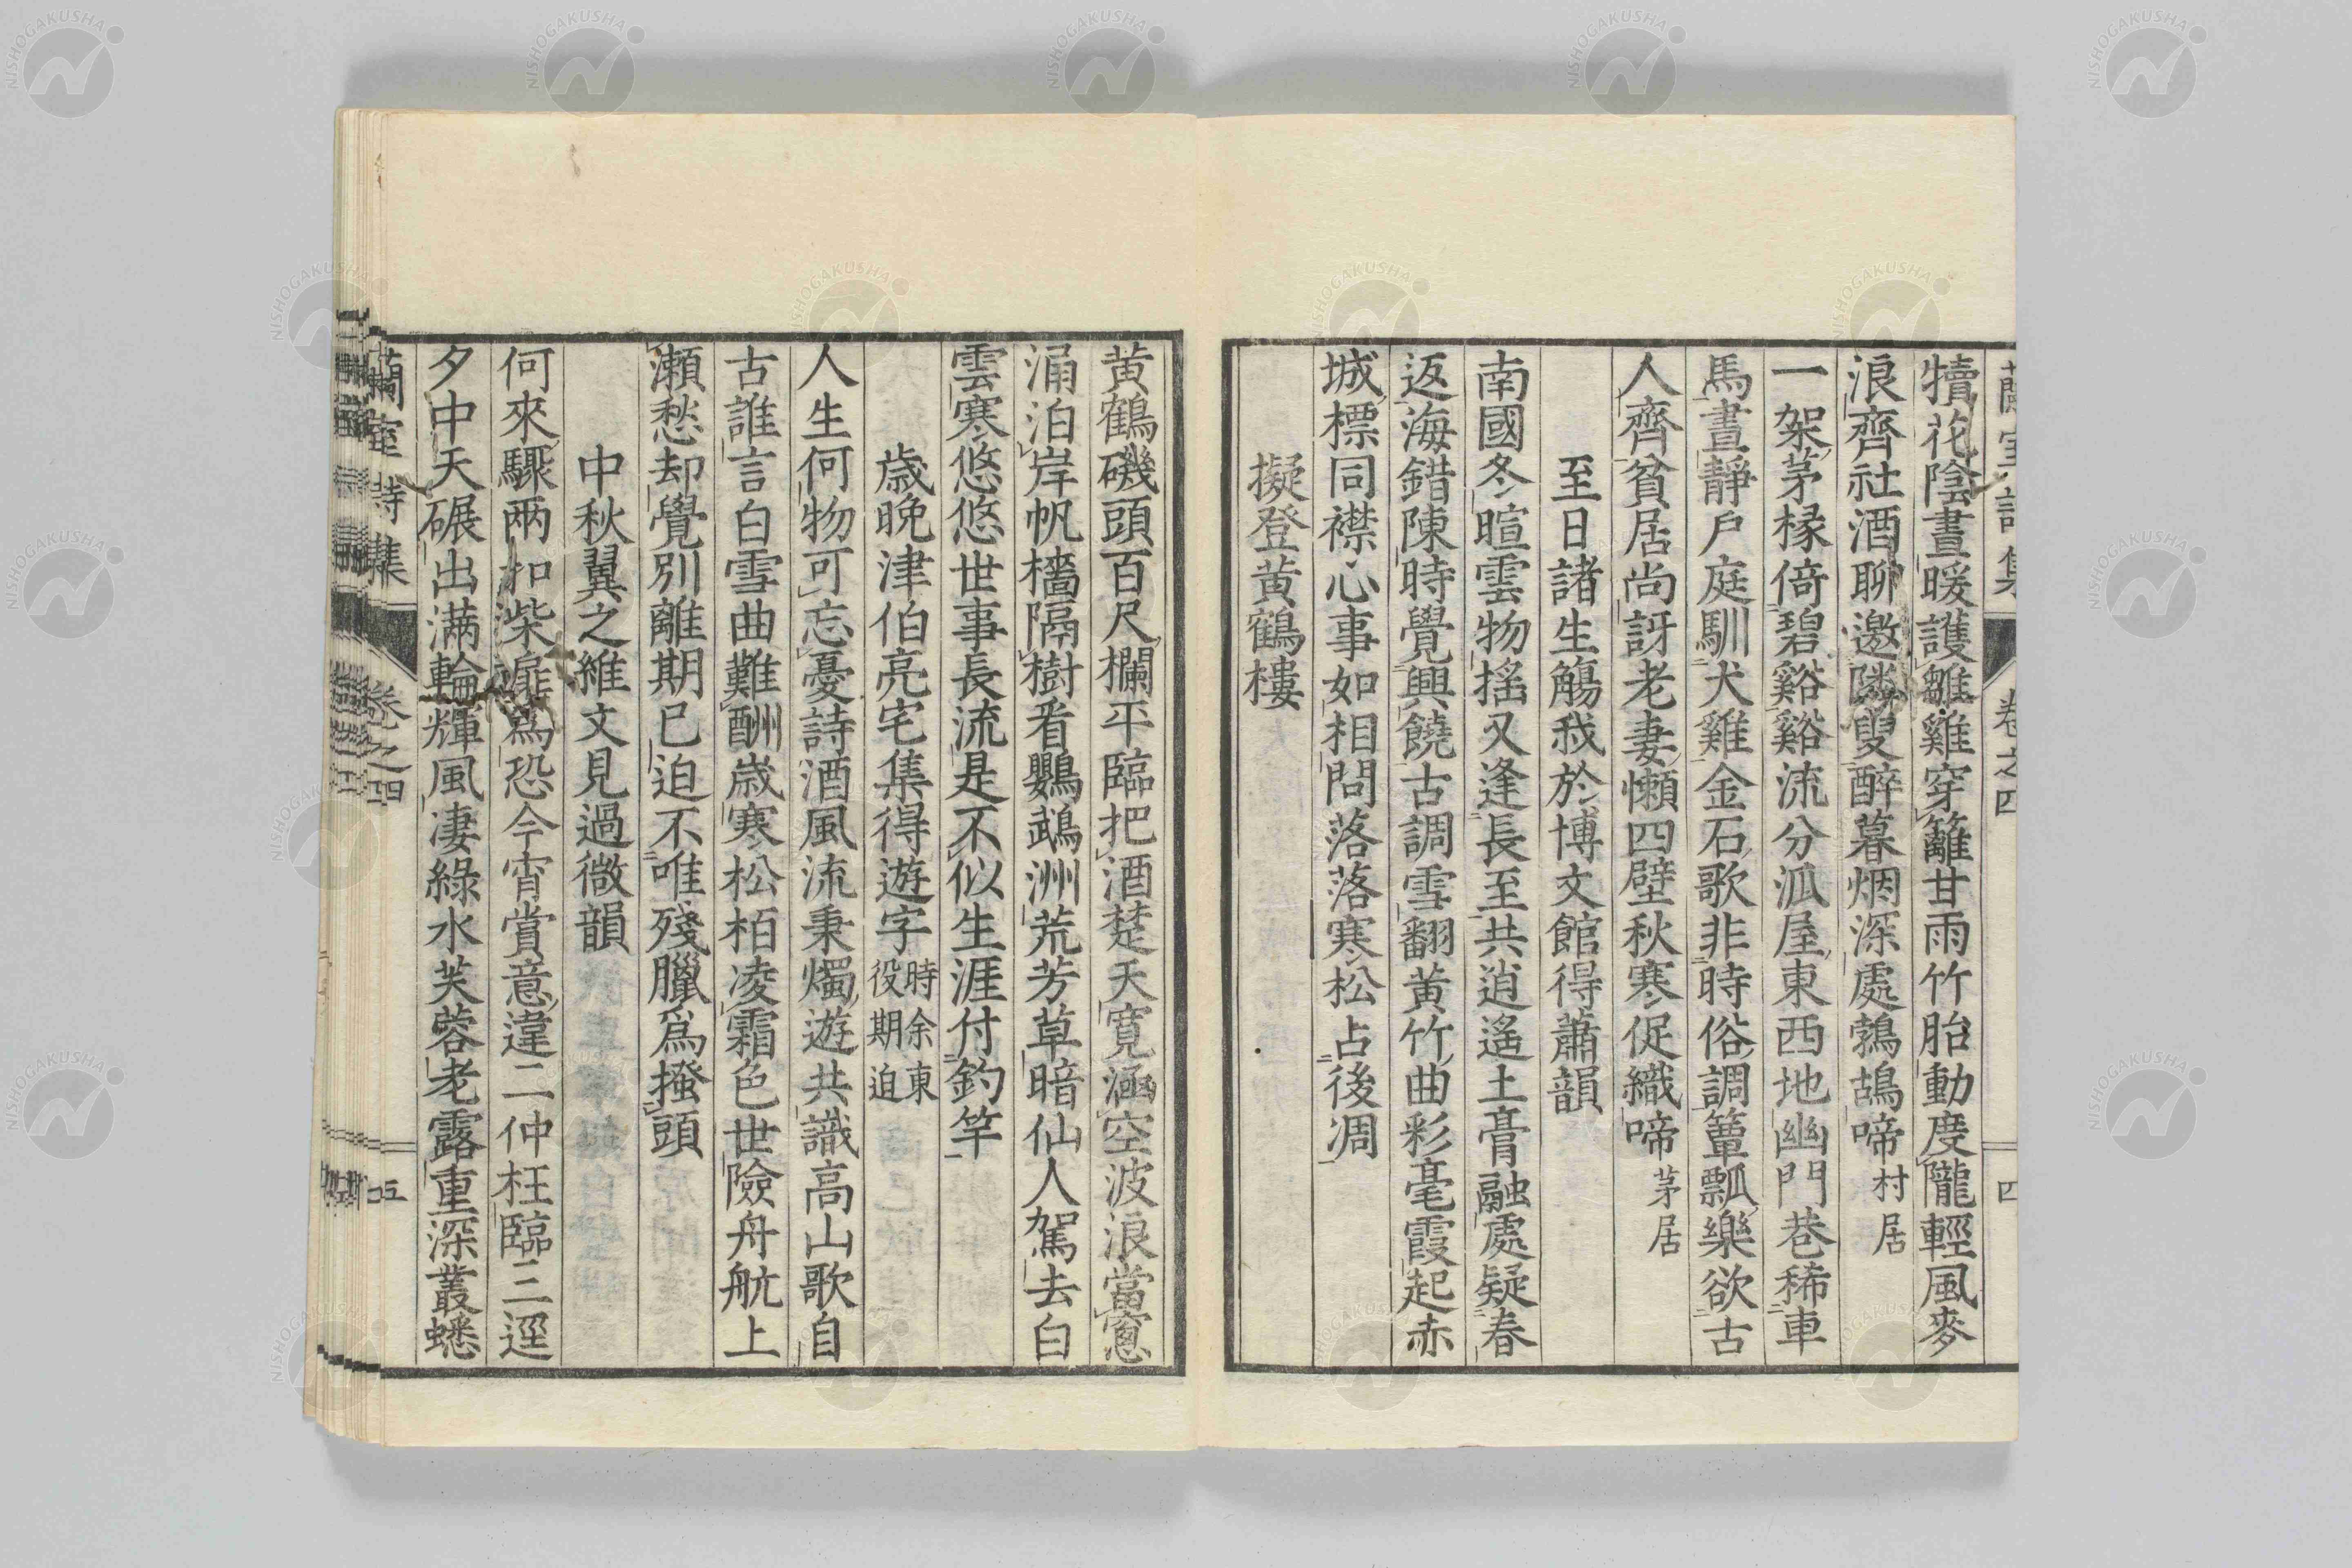 犢花陰晝暖護雛雞穿籬甘雨竹胎動度隴輕風麥
浪齊社酒聊邀隣叟醉暮烟深處鷄鴣啼村居
一架茅椽倚碧谿谿流分泒屋東西地幽門巷稀車
馬晝靜戶庭馴犬雞金石歌非時俗調簞瓢樂欲古
人齊貧居尚訝老妻懶四壁秋寒促織啼茅居
至日諸生觴我於博文館得蕭韻
南國冬暄雲物搖又逢長至共逍遙土膏融處疑春
返海錯陳時覺興饒古調雪翻黃竹曲彩毫霞起赤
城標同襟心事如相問落落寒松占後凋
擬登黃鶴樓
卷之四
四
黃鶴磯頭百尺欄平臨把酒楚天寬涵空波浪當窓
涌泊岸帆檣隔樹看鸚鵡洲荒芳草暗仙人駕去白
雲寒悠悠世事長流是不似生涯付釣竿
歲晚津伯亮宅集得遊字時余東役期迫
人生何物可忘憂詩酒風流秉燭遊共識高山歌自
古誰言白雪曲難酬歲寒松栢凌霜色世險舟航上
瀨愁却覺別離期已迫不唯殘臘爲搔頭
中秋翼之維文見過微韻
何來驟兩扣柴扉爲恐今宵賞意違二仲枉臨三逕
夕中天碾出滿輪輝風凄綠水芙蓉老露重深叢蟋
蘭室詩集
卷之四
五
NISHOGAKUSHA